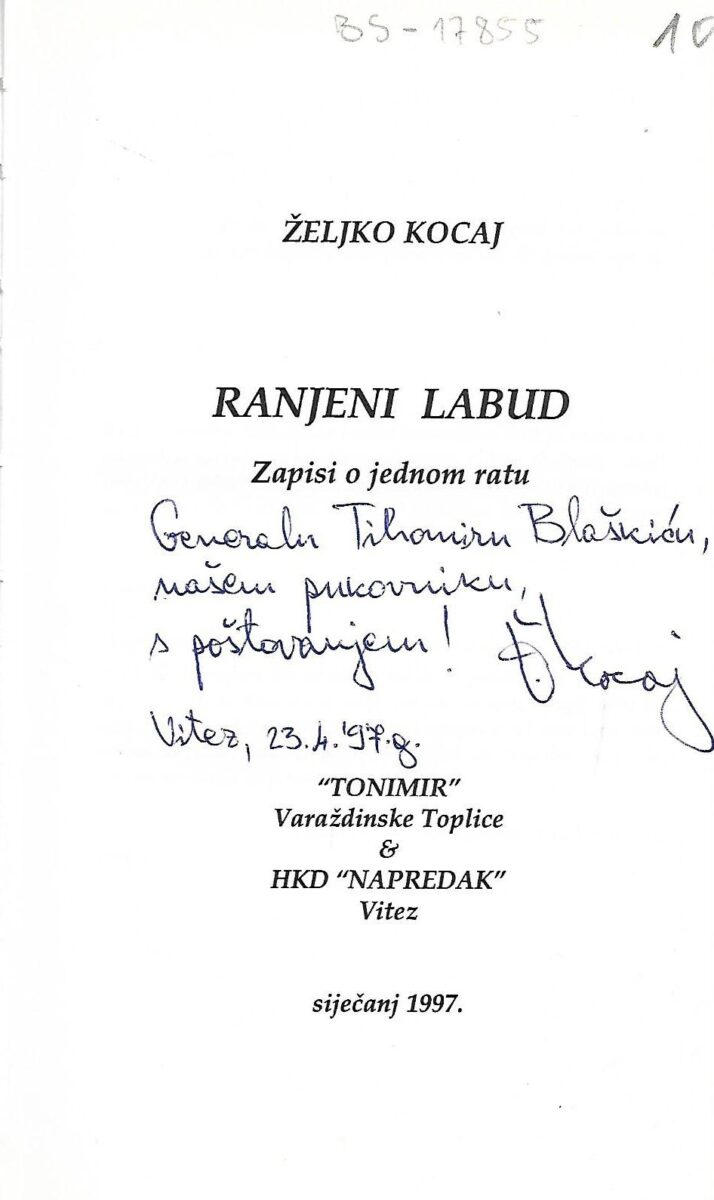 BS-17855
10
ŽELJKO KOCAJ
RANJENI LABUD
Zapisi o jednom ratu
Generalu Tihomiru Blaškiću,
našem pukovniku,
s poštovanjem! Ž. Kocaj
Vitez, 23.4.'97.g.
“TONIMIR”
Varaždinske Toplice
&
HKD “NAPREDAK”
Vitez
siječanj 1997.